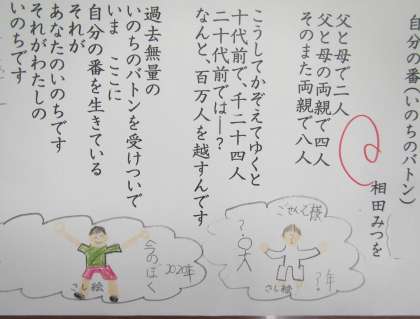 自分の番(いのちのバトン)
相田みつを
父と母で二人
父と母の両親で四人
そのまた両親で八人
こうしてかぞえてゆくと
十代前で、千二十四人
二十代前では―?
なんと、百万人を越すんです
過去無量の
いのちのバトンを受けついで
いま ここに
自分の番を生きている
それが
あなたのいのちです
それがわたしの
いのちです
ごせんぞ様
?年
さし絵
今のぼく
2020年
さし絵